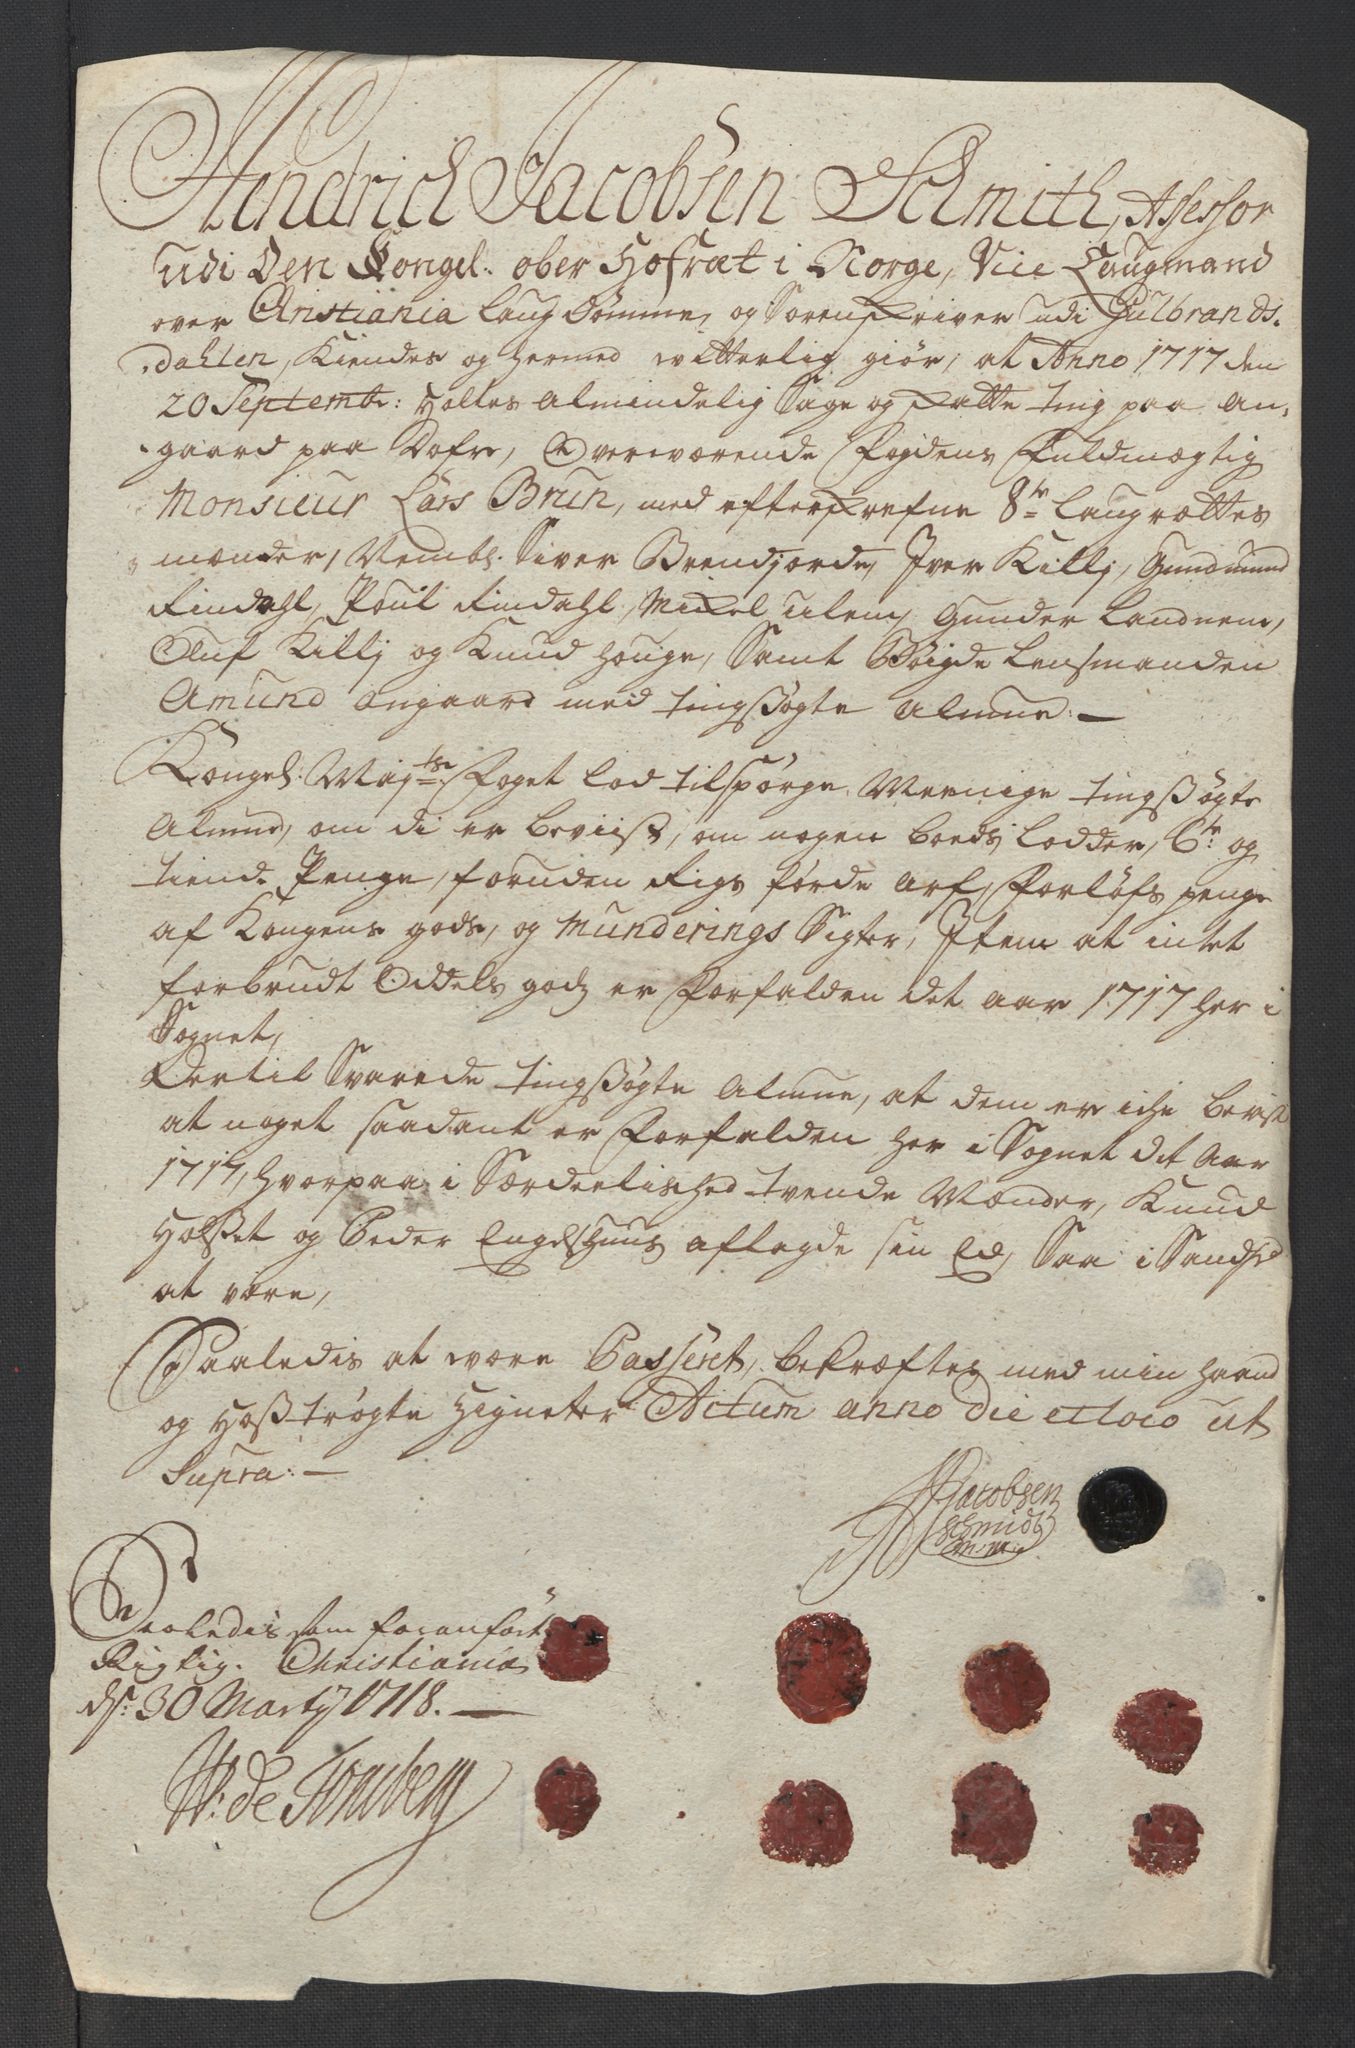 Hendrich Jacobsen Schmith, Assessor
udi Den Kongel: ober Hofræt i Norge, Vice Laugmand
over Christiania Laugdømme, og Sorenskriver udi Gulbrands-
dahlen, Kiendes og hermed witterlig giör, at Anno 1717 den
20 Septembr: Holtes Almindelig Sage og skatte ting paa An-
gaard paa Dofre, Overværende Fogdens Fuldmægtig
Monsieur Lars Brun, med efterskrefne 8te Laugrættes
mænder, Nembl. Siver Brendjorde, Iver Killj, Gundmund
Rindahl, Poul Rindahl, Mikel Ulem, Gunder Landnem,
Oluf Killj og Knud Houge, Samt Bøigde Lensmanden
Amund Angaard med tingsøgte Almue:—
Kongel: Maj:ts Foget lod tilspørge Meenige tingsøgte
Almue, om di er beviist, om nogen boeds lodder, 6te og
tiende Penge, foruden Rigs førde Arf, Forløfs penge
af Kongens gods, og Munderings Sigter, Item at intet
forbrudt Oddels godz er Forfalden det aar 1717 her i
Sognet,
Dertil Svarede tingsøgte Almue, at dem er iche bevist
at noget saadant er Forfalden her i Sognet det Aar
1717, hvorpaa i Særdeelished tvende Mænder, Knud
Holset og Peder Engelshuus aflagde sin Eed, Saa i Sandhed
at være,
Saaledis at være Passeret, bekræftes med min haand
og hoss trøgte Zigneter Actum anno die et loco ut
Supra:—
HJacobsen
Schmidt
Saaledis som foranført
Rigtig. Christiania
ds: 30 Martj 1718.—
W: de Tonsberg